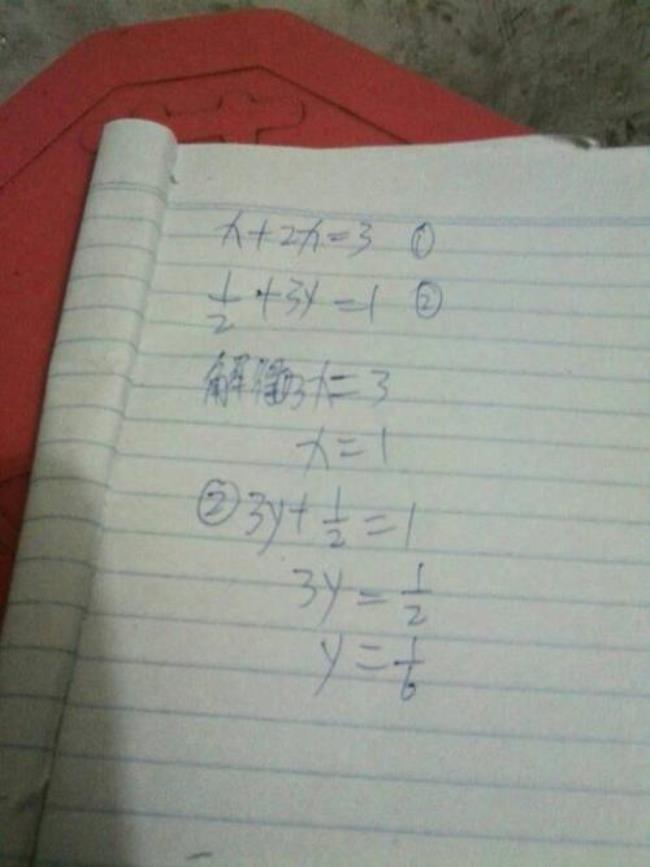 x+2x=3 ①
1/2+3y=1 ②
解得3x=3
x=1
②3y+1/2=1
3y=1/2
y=1/6